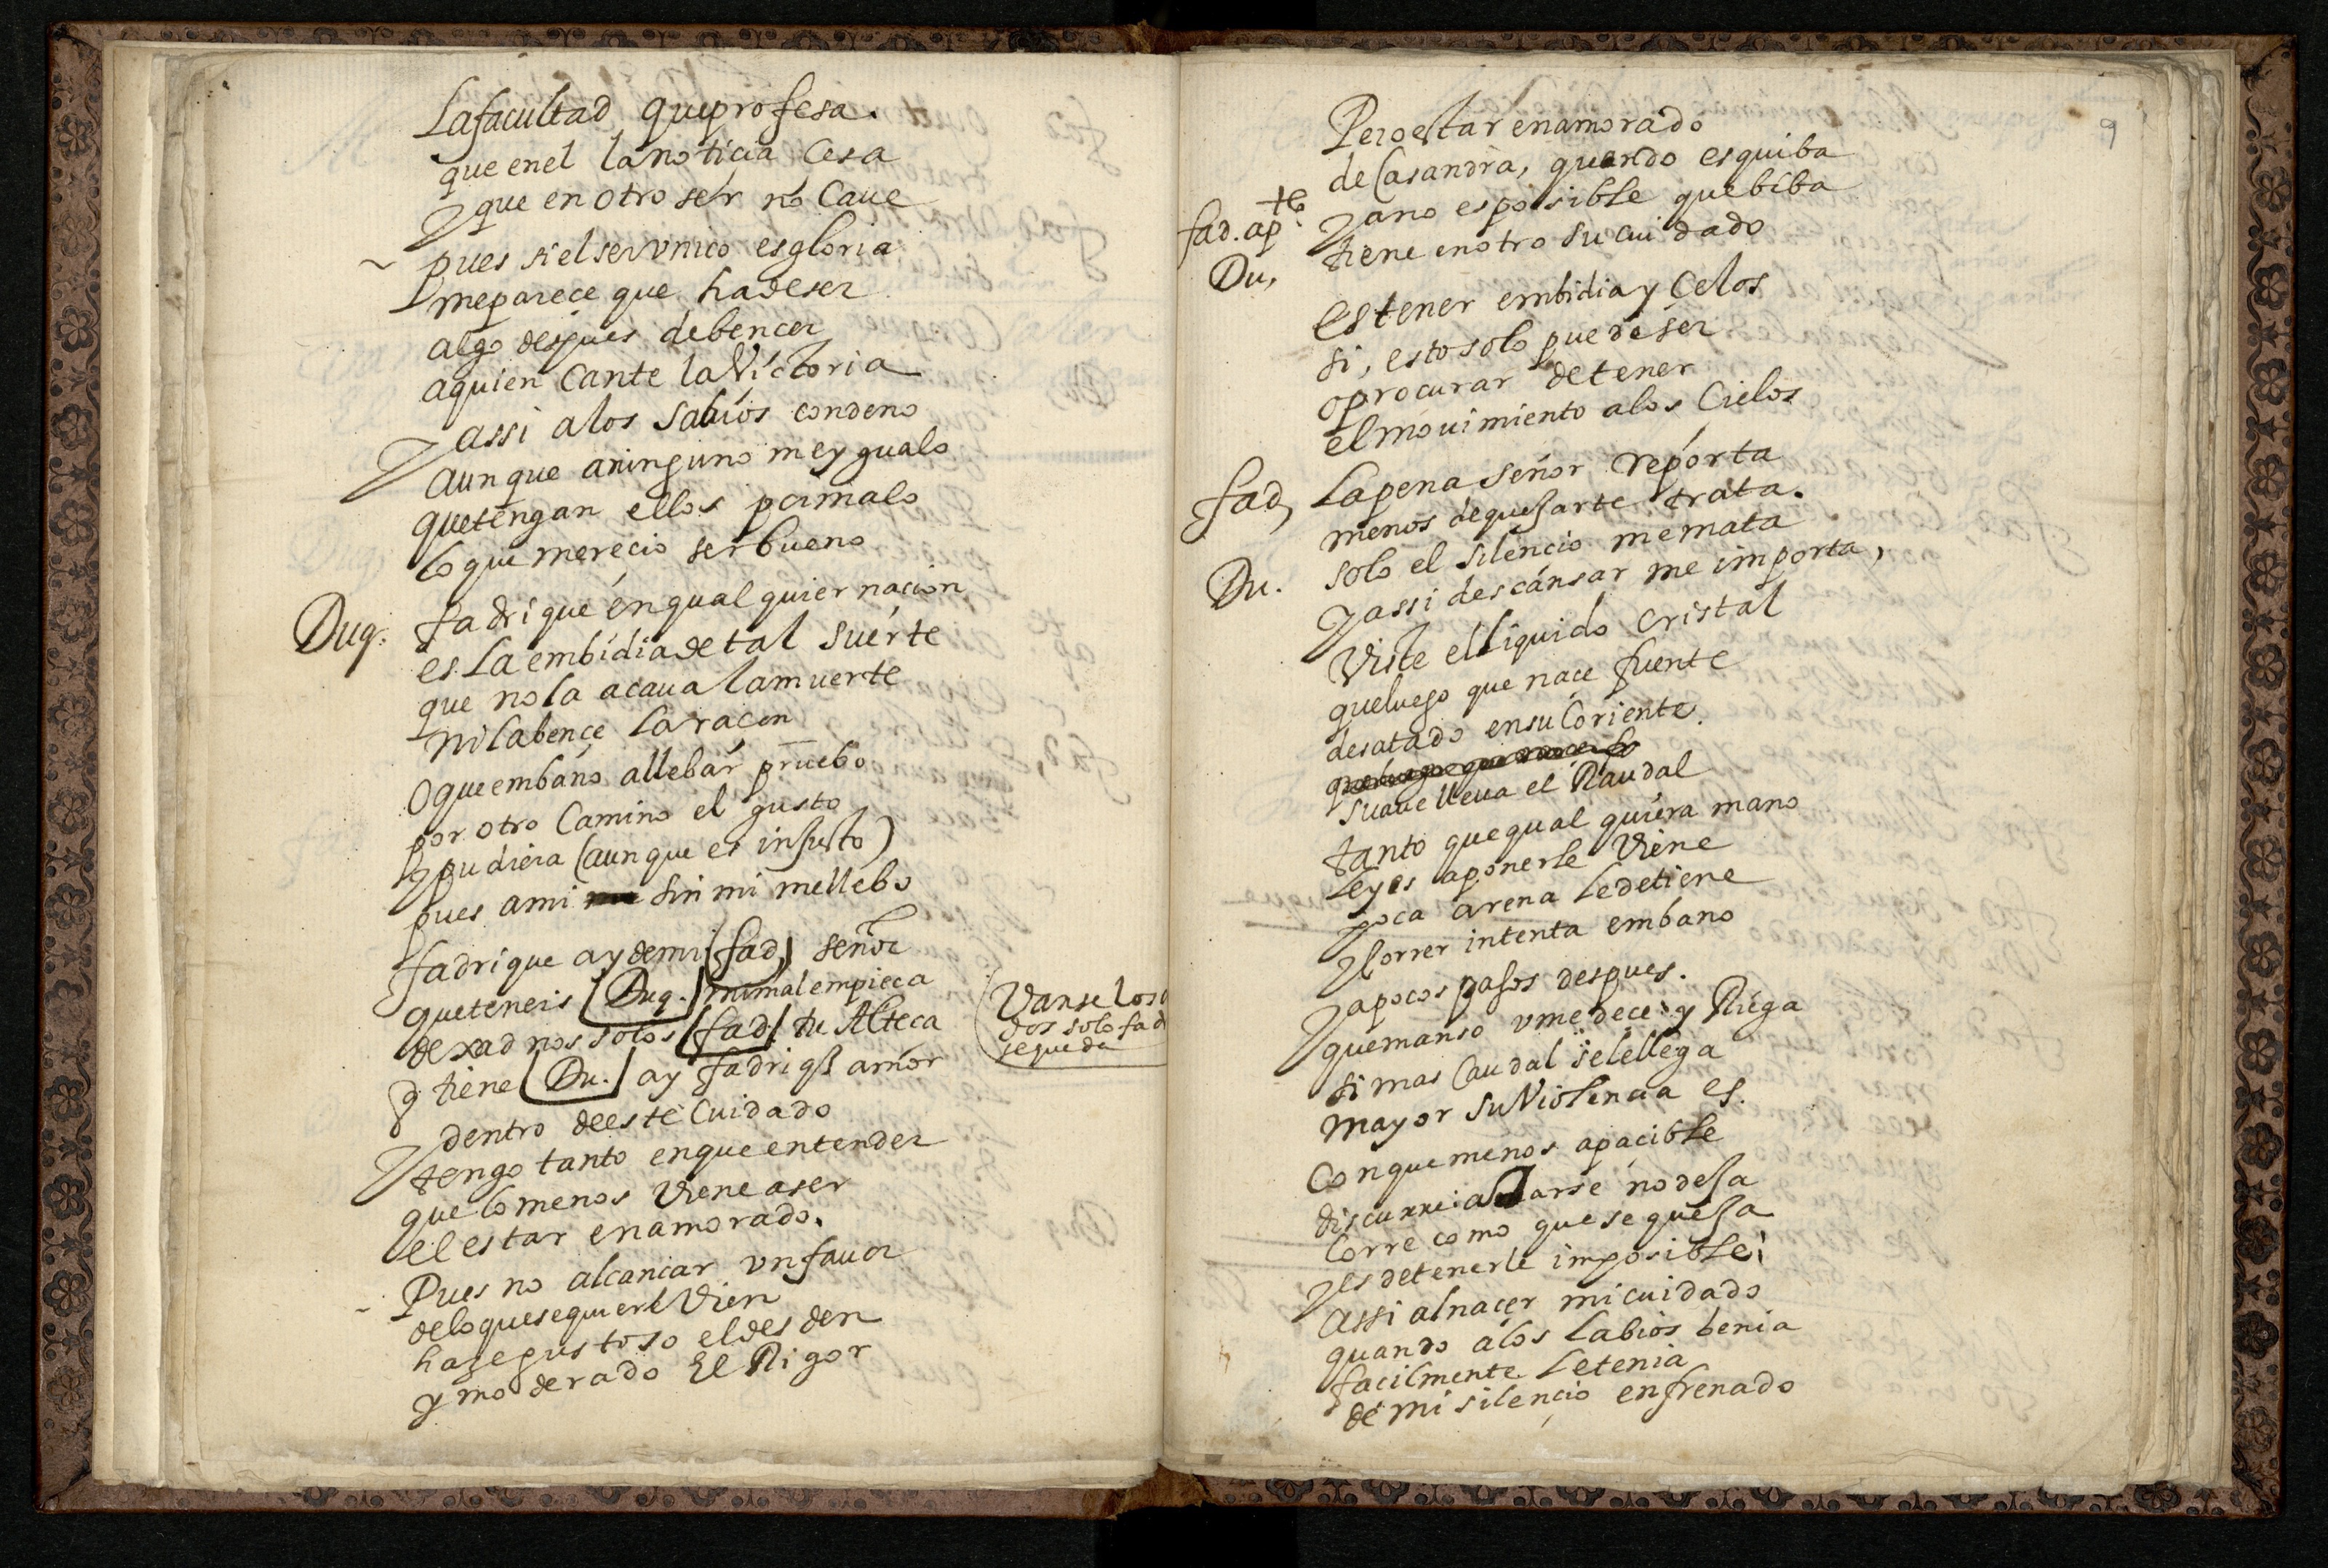 La facultad que profesa.
que en el la noticia Cesa
y que en otro ser no Caue
pues si el ser vnico es gloria
me parece que ha de ser
algo despues de bencer
a quien Cante la Victoria
y assi a los sabios condeno
aunque a ninguno me ygualo
que tengan ellos por malo
lo que merecio ser bueno
Duq. fadrique en qual quier nacion
es La embidia de tal suerte
que no la acaua la muerte
ni la bençe la raçon
O que embano a llebar pruebo
por otro Camino el gusto
y pudiera (aunque es injusto)
pues a mi sin mi me llebo
fadrique ay de mi (fad,) señor
que teneis (Duq.) mi mal empieca
dexad nos solos (fad) tu Alteca
Vanse los
dos solo fad
se queda
q tiene (Du.) ay fadriq amor
y dentro de este Cuidado
tengo tanto en que entender
que lo menos viene a ser
el estar enamorado.
Pues no alcançar vn fauor
de lo que se quiere Vien
haze gustoso el des den
y moderado El Rigor
9
Pero estar enamorado
de Casandra, quando esquiba
fad. ap.te ya no es posible que biba
Du, tiene en otro su cuidado
es tener embidia y Celos
si, esto solo puede ser
o procurar detener
el mouimiento a los Cielos
fad, La pena señor reporta
menos de quejarte trata.
Du. solo el silencio me mata
y assi descansar me importa,
Viste el liquido cristal
que luego que nace fuente
desatado en su Coriente.
suaue lleua el Raudal
tanto que qual quiera mano
Leyes a ponerle Viene
y poca arena Le detiene
y Correr intenta embano
y a pocos pasos despues.
que manso vmedece y Riega
si mas Caudal se le llega
mayor su Violencia es.
Con que menos apacible
discurrir no deja
Corre como que se queja
y es detenerle imposible;
assi al nacer mi cuidado
quando a los Labios benia
facilmente Le tenia
de mi silencio enfrenado